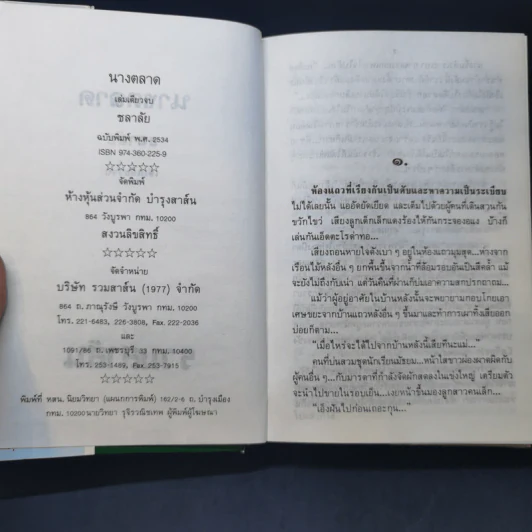 นางตลาด
เล่มเดียวจบ
ชลาลัย
ฉบับพิมพ์ พ.ศ. 2534
ISBN 974-360-225-9
☆☆☆☆☆
จัดพิมพ์
ห้างหุ้นส่วนจำกัด บำรุงสาส์น
864 วังบูรพา กทม. 10200
สงวนลิขสิทธิ์
☆☆☆☆☆
จัดจำหน่าย
บริษัท รวมสาส์น (1977) จำกัด
864 ถ. ภาณุรังษี วังบูรพา กทม. 10200
โทร. 221-6483, 222-3808, Fax. 222-2036
และ
1091/86 ถ. เพชรบุรี 33 กทม. 10400
โทร. 253-1489, Fax. 253-7915
☆☆☆☆☆
พิมพ์ที่ หสน. นิยมวิทยา (แผนกการพิมพ์) 162/2-6 ถ. บำรุงเมือง
กทม. 10200 นายวิทยา รุจิรวณิชเทพ ผู้พิมพ์ผู้โฆษณา
๑.
ห้องแถวที่เรียงกันเป็นตับและหาความเป็นระเบียบ
ไม่ได้เลยนั้น แออัดยัดเยียด และเต็มไปด้วยผู้คนที่เดินสวนกัน
ขวักไขว่ เสียงลูกเด็กเล็กแดงร้องไห้กันกระจองอแง บ้างก็
เล่นกันเอ็ดตะโรด่าทอ...
เสียงถอนหายใจดังเบา ๆ อยู่ในห้องแถวมุมสุด...ห่างจาก
เรือนไม้หลังอื่น ๆ ยกพื้นขึ้นจากน้ำที่ล้อมรอบอันเป็นสีคล้ำ แม้
จะยังไม่ถึงกับเน่า แต่วันคืนที่ผ่านกับมีเอาความสกปรกถาถม...
แม้ว่าผู้อยู่อาศัยในบ้านหลังนั้นจะพยายามกอบโกยเอา
เศษขยะจากบ้านแถวหลังอื่น ๆ ขึ้นมาและทำการเผาทิ้งเสียออก
บ่อยก็ตาม...
"เมื่อไหร่จะได้ไปจากบ้านหลังนี้เสียทีนะแม่..."
คนที่บ่นสวมชุดนักเรียนมัธยม...หน้าใสขาวผ่องผาดผิดกับ
ผู้คนอื่น ๆ...กับมารดาที่กำลังจัดผักสดลงในเข่งใหญ่ เตรียมตัว
จะนำไปขายในรอบเย็น...เงยหน้าขึ้นมองลูกสาวคนเล็ก...
"เอ็งฝันไปก่อนเถอะกุน..."